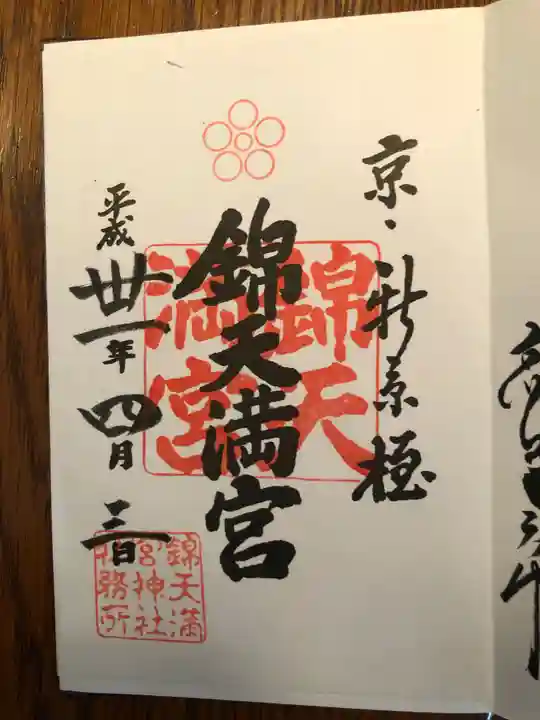 京・新京極
錦天満宮
錦天
満宮
平成
卅一年
四月
三日
錦天満
宮神社
社務所